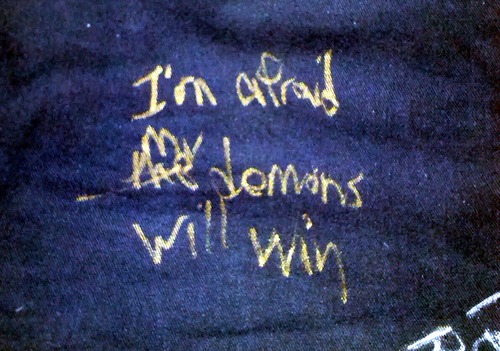 I'm afraid
my
the demons
will win